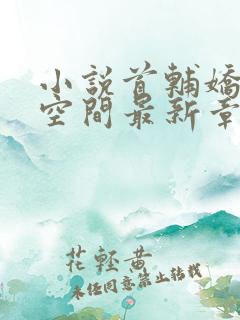 小說首輔嬌
空間最新章
花輕黃
未經同意禁止轉載